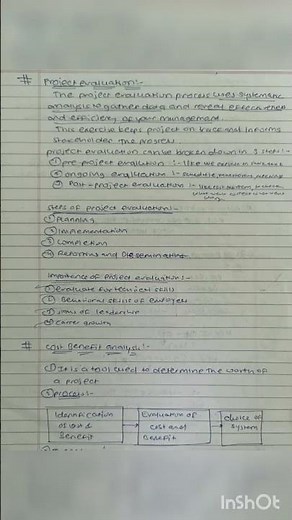 # Project evaluation:-
The project evaluation process uses systematic
analysis to gather data and reveal effectiveness
and efficiency of your management.
This exercise keeps project on track and informs
stakeholder the
project evaluation can be broken down in 3 steps:-
① pre project evaluation :- like we
② ongoing evaluation :-
③ Post - project evaluation :-
Steps of project evaluation:-
① Planning
② Implementation
③ Completion
④ Reporting and Dissemination
Importance of project evaluation:-
① evaluate for technical skills
② Behavioral skills of employees
③ of leadership
④ Career growth
# Cost Benefit analysis:-
① It is a tool used to determine the worth of
a project
② process:-
Identification
of cost &
Benefit
Evaluation of
cost and
Benefit
choice of
system
InShOt